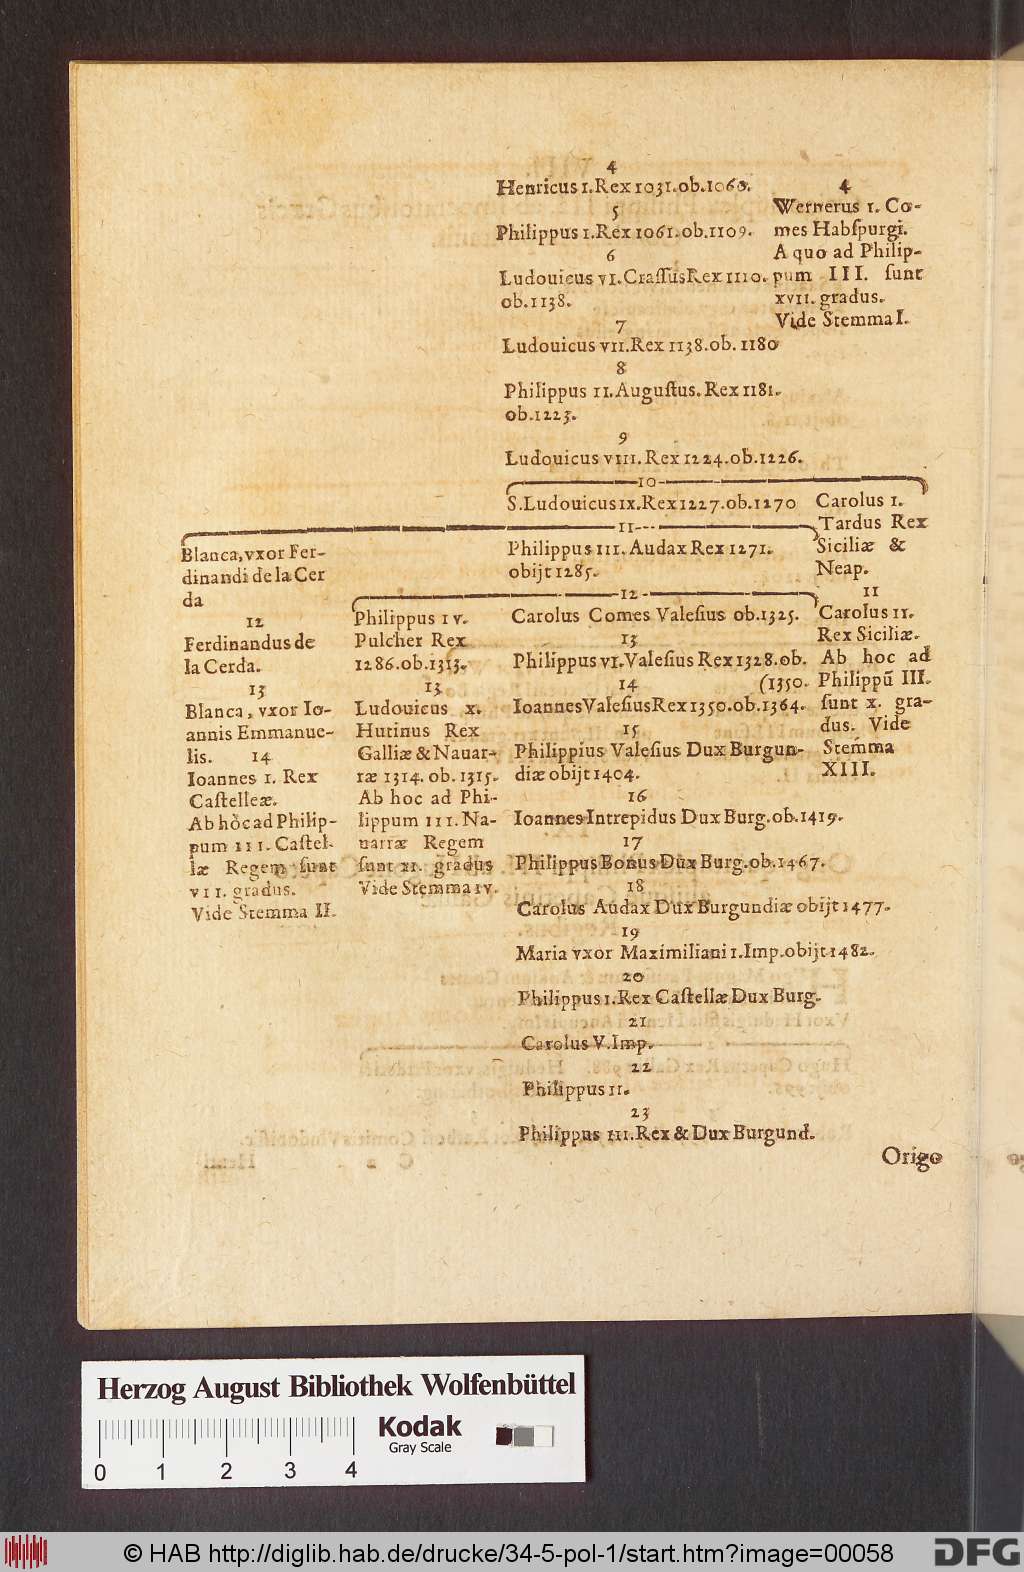 4
Henricus 1. Rex 1031. ob. 1060.
5
Philippus 1. Rex 1061. ob. 1109.
6
Ludouicus VI. Craſſus Rex 1110.
ob. 1138.
7
Ludouicus VII. Rex 1138. ob. 1180
8
Philippus 11. Auguſtus. Rex 1181.
ob. 1223.
9
Ludouicus VIII. Rex 1224. ob. 1226.
4
Wernerus 1. Co-
mes Habſpurgi.
A quo ad Philip-
pum III. ſunt
XVII. gradus.
Vide Stemma I.
10
S. Ludouicus IX. Rex 1227. ob. 1270
11
Philippus III. Audax Rex 1271.
obijt 1285.
12
Carolus Comes Valeſius ob. 1325.
13
Philippus VI. Valeſius Rex 1328. ob.
(1350.
14
Ioannes Valeſius Rex 1350. ob. 1364.
15
Philippius Valeſius Dux Burgun-
diæ obijt 1404.
16
Ioannes Intrepidus Dux Burg. ob. 1419.
17
Philippus Bonus Dux Burg. ob. 1467.
18
Carolus Audax Dux Burgundiæ obijt 1477.
19
Maria vxor Maximiliani 1. Imp. obijt 1482.
20
Philippus 1. Rex Caſtellæ Dux Burg.
21
Carolus V. Imp.
22
Philippus 11.
23
Philippus III. Rex & Dux Burgund.
Carolus 1.
Tardus Rex
Siciliæ &
Neap.
11
Carolus 11.
Rex Siciliæ.
Ab hoc ad
Philippū III.
ſunt X. gra-
dus. Vide
Stemma
XIII.
Blanca, vxor Fer-
dinandi de la Cer
da
12
Ferdinandus de
la Cerda.
13
Blanca, vxor Io-
annis Emmanue-
lis. 14
Ioannes 1. Rex
Caſtelleæ.
Ab hoc ad Philip-
pum III. Caſtel-
læ Regem ſunt
VII. gradus.
Vide Stemma II.
Philippus IV.
Pulcher Rex
1286. ob. 1313.
13
Ludouicus X.
Hutinus Rex
Galliæ & Nauar-
ræ 1314. ob. 1315.
Ab hoc ad Phi-
lippum III. Na-
uarræ Regem
ſunt XI. gradus
Vide Stemma IV.
Origo
Herzog August Bibliothek Wolfenbüttel
Kodak
Gray Scale
0 1 2 3 4
© HAB http://diglib.hab.de/drucke/34-5-pol-1/start.htm?image=00058
DFG